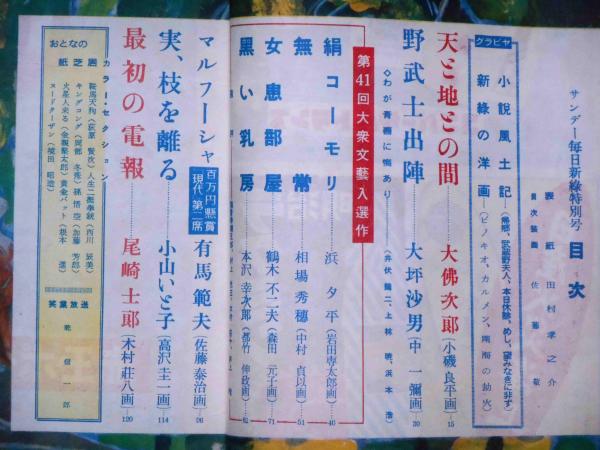 サンデー毎日新緑特別号
目次
表紙 田村孝之介
目次装画 佐藤 敬
グラビヤ
小説風土記(帰郷、武蔵野夫人、本日休診、めし、望みなきに非ず)
新緑の洋画(ピノキオ、カルメン、南海の劫火)
天と地との間 大佛次郎(小磯良平画)15
野武士出陣 大坪沙男(中 一彌画)30
◇わが青春に悔あり (井伏鱒二、上林 暁、浜本 浩)
第41回大衆文藝入選作
絹コーモリ 浜 夕平(岩田専太郎画)40
無常 相場秀穂(中村 貞以画)51
女患部屋 鶴木不二夫(森田 元子画)71
黒い乳房 本沢幸次郎(都竹 伸政画)82
マルフーシャ 百万円懸賞 現代第二席 有馬範夫(佐藤泰治画)96
実、枝を離る 小山いと子(高沢圭一画)114
最初の電報 尾崎士郎(木村荘八画)120
カラー・セクション
おとなの紙芝居
鞍馬天狗(荻原 賢次) 人生二挺拳銃(西川 辰美)
キングコング(岡部 冬彦) 孫悟空(加藤 芳郎)
火星人来る(金親堅太郎) 黄金バット(根本 進)
ヌードターザン(境田 昭造)
笑葉放送
乾 信一郎